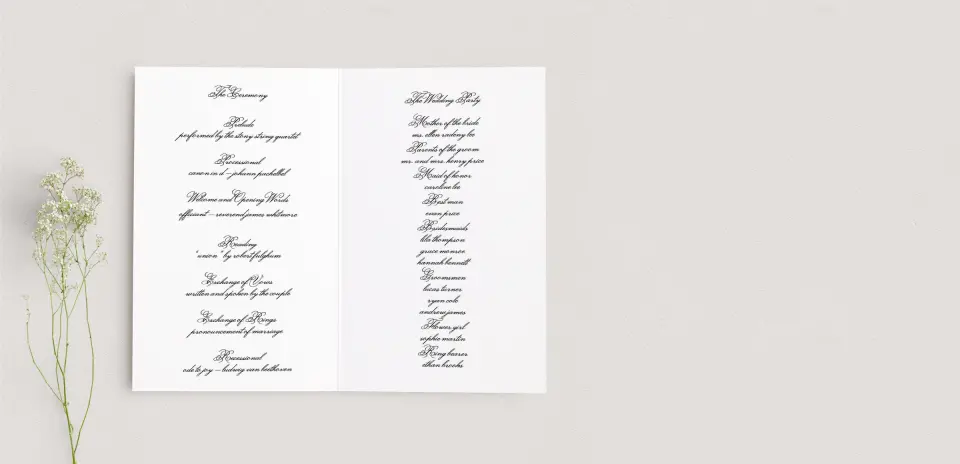 The Ceremony
Prelude
performed by the stony string quartet
Processional
canon in d – johann pachelbel
Welcome and Opening Words
officiant – reverend james whitmore
Reading
"union" by robert fulghum
Exchange of Vows
written and spoken by the couple
Exchange of Rings
pronouncement of marriage
Recessional
ode to joy – ludwig van beethoven
The Wedding Party
Mother of the bride
mrs. ellen lee
Parents of the groom
mr. and mrs. henry price
Maid of honor
caroline lee
Best man
evan price
Bridesmaids
lila thompson
grace monroe
hannah bennett
Groomsmen
lucas turner
ryan cole
andrew james
Flower girl
sophie martin
Ring bearer
ethan brooks